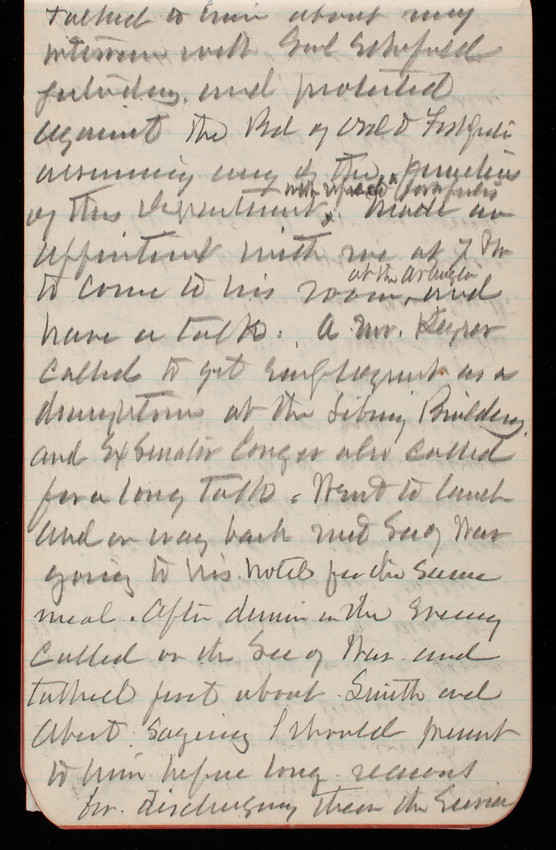 talked to him about my
interview with Genl Schofield
yesterday, and protested
against the Bd of Ord & Fortfcti
assuming any of the functions
with regard to fortfctns
of this Department. Made an
appointment with me at 7 PM
at the Arlington
to come to his room, and
have a talk. A Mr. Keyser
called to get employment as a
draughtsman at the Library Building,
and Ex Senator Conger also called
for a long talk. Went to lunch
and on way back met Sec of War
going to his hotel for the same
meal. After dinner in the Evening
called on the Sec of War and
talked first about Smith and
Abert. Saying I should present
to him before long reasons
for discharging them the Service